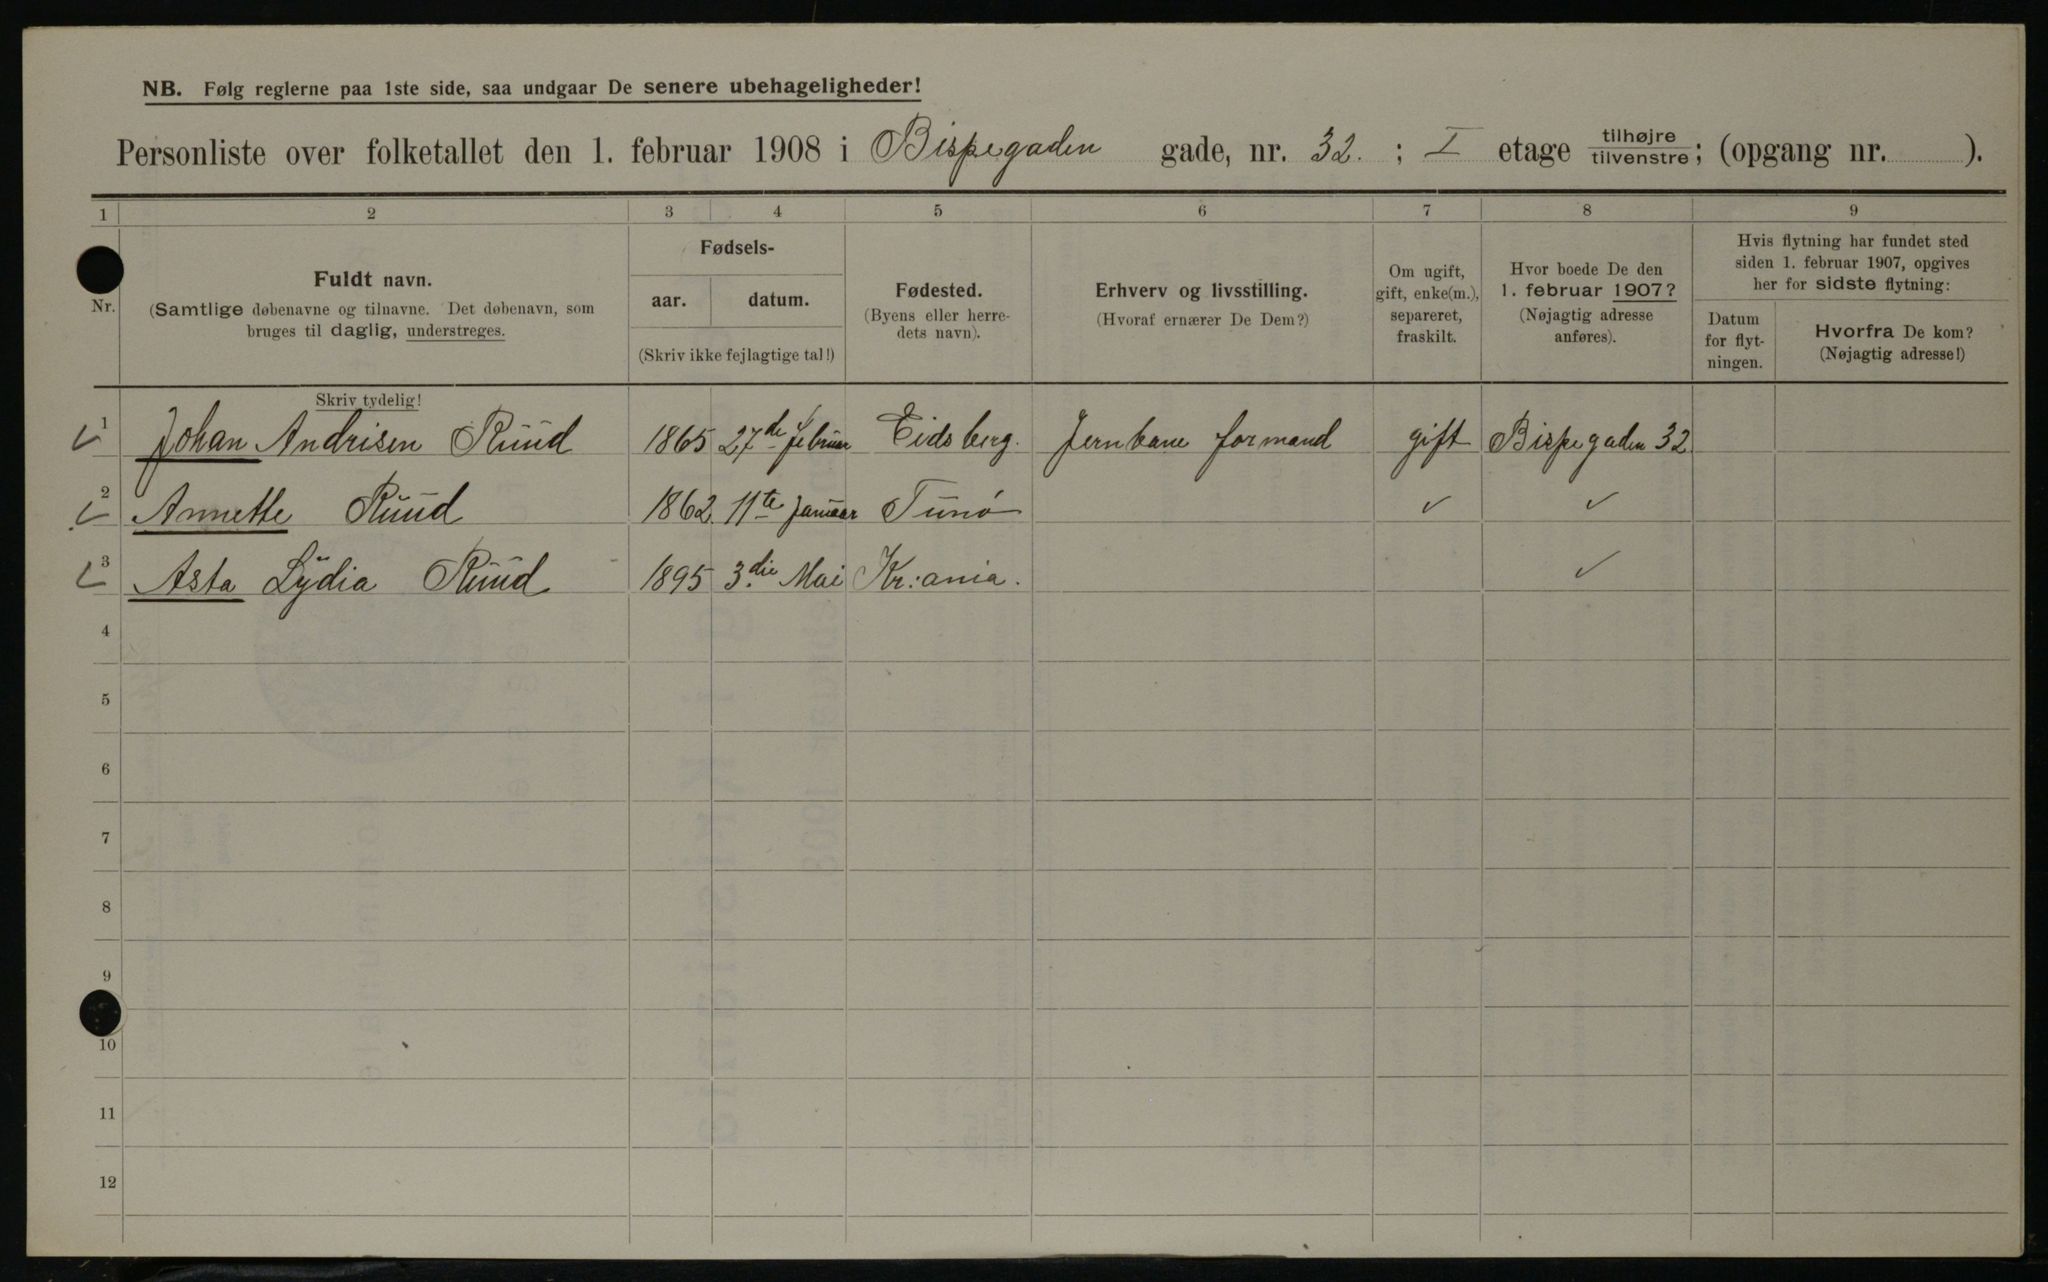 NB. Følg reglerne paa 1ste side, saa undgaar De senere ubehageligheder!
Personliste over folketallet den 1. februar 1908 i Bispegaden gade, nr. 32. ; I etage tilhøjre tilvenstre; (opgang nr. ).
1 2 3 4 5 6 7 8 9
Nr.
Fuldt navn.
(Samtlige døbenavne og tilnavne. Det døbenavn, som
bruges til daglig, understreges.
Fødsels-
aar. datum.
(Skriv ikke fejlagtige tal!)
Fødested.
(Byens eller herre-
dets navn).
Erhverv og livsstilling.
(Hvoraf ernærer De Dem?)
Om ugift,
gift, enke(m.),
separeret,
fraskilt.
Hvor boede De den
1. februar 1907?
(Nøjagtig adresse
anføres).
Hvis flytning har fundet sted
siden 1. februar 1907, opgives
her for sidste flytning:
Datum
for flyt-
ningen.
Hvorfra De kom?
(Nøjagtig adresse!)
Skriv tydelig!
✓ 1 Johan Andrisen Ruud 1865 27de Februar Eidsberg. Jernbane formand gift Bispegaden 32
✓ 2 Annette Ruud 1862. 11te Januar Tunø ✓ ✓
✓ 3 Asta Lydia Ruud 1895 3die Mai Kr:ania. ✓
4
5
6
7
8
9
10
11
12